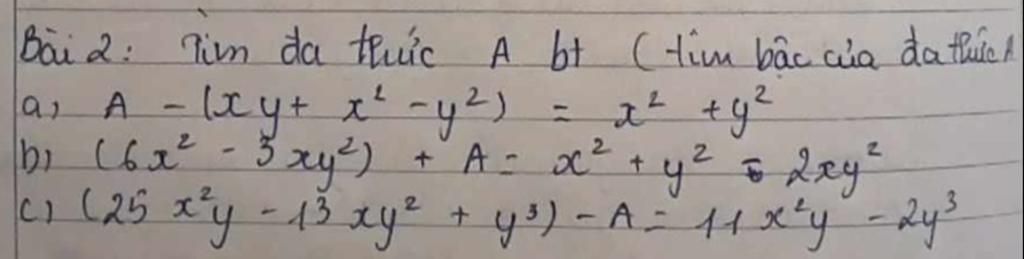 Bài 2: Tìm đa thức A bt (tìm bậc của đa thức A
a) A - (xy + x² - y²) = x² + y²
b) (6x² - 3xy²) + A = x² + y² - 2xy²
c) (25x²y - 13xy² + y³) - A = 11x²y - 2y³